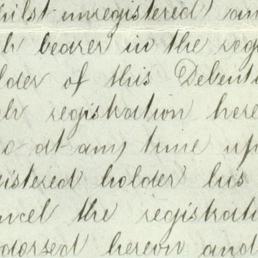 hilst unregistered) an
h bearer in the reg
lder of this Debent
h registration here
o at any time up
istered holder his
ncel the registrat
dorsed hereon and